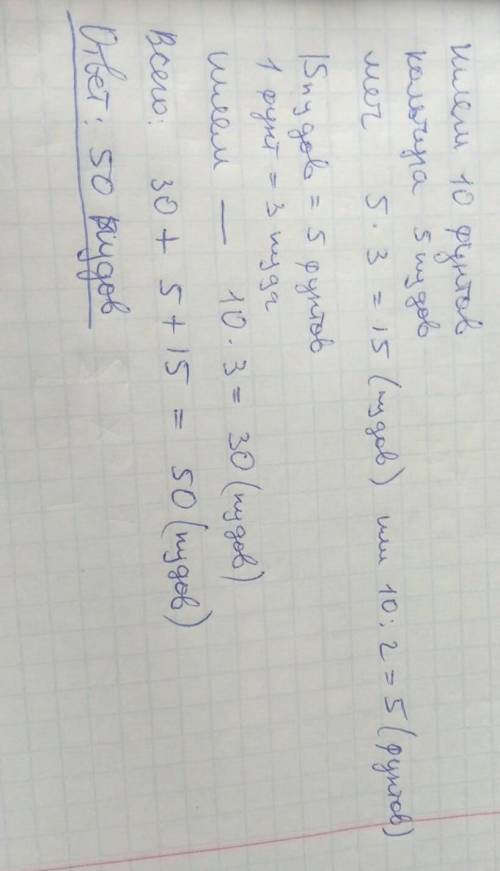 шлем 10 фунтов
кольчуга 5 пудов
меч 5 · 3 = 15 (пудов) или 10 : 2 = 5 (фунтов)
15 пудов = 5 фунтов
1 фунт = 3 пуда
шлем — 10 · 3 = 30 (пудов)
Всего: 30 + 5 + 15 = 50 (пудов)
Ответ: 50 пудов